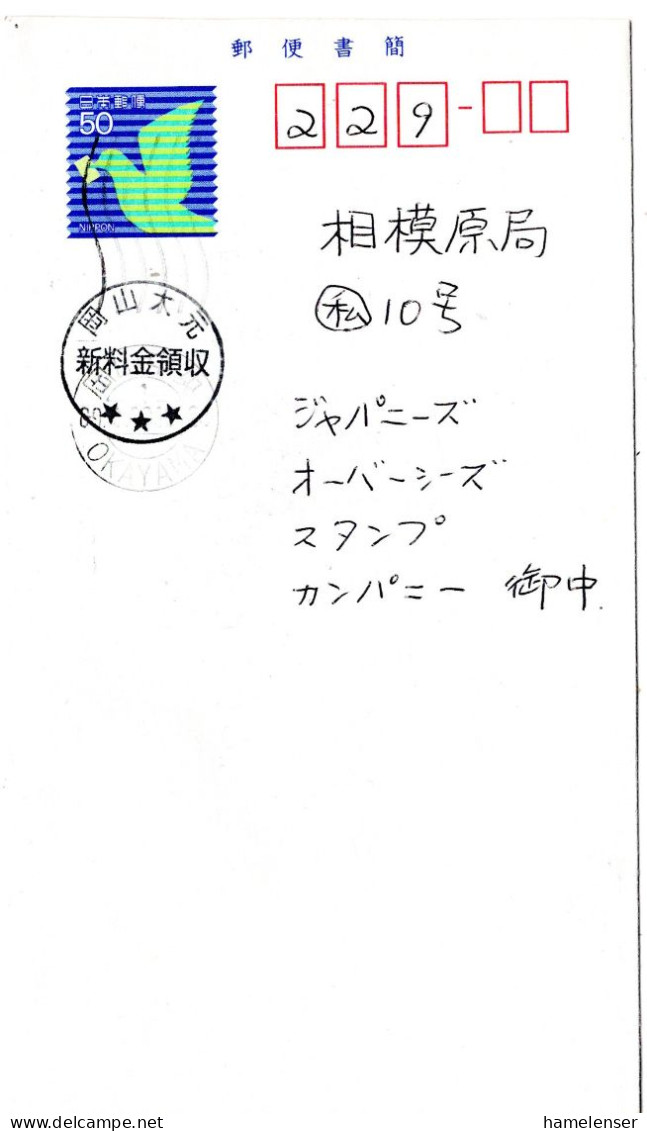 郵便書簡
日本郵便
50
NIPPON
229-
相模原局
私 10号
岡山大元
新料金領収
★★★
OKAYAMA
ジャパニーズ
オーバーシーズ
スタンプ
カンパニー 御中
delcampe.net
hamelenser